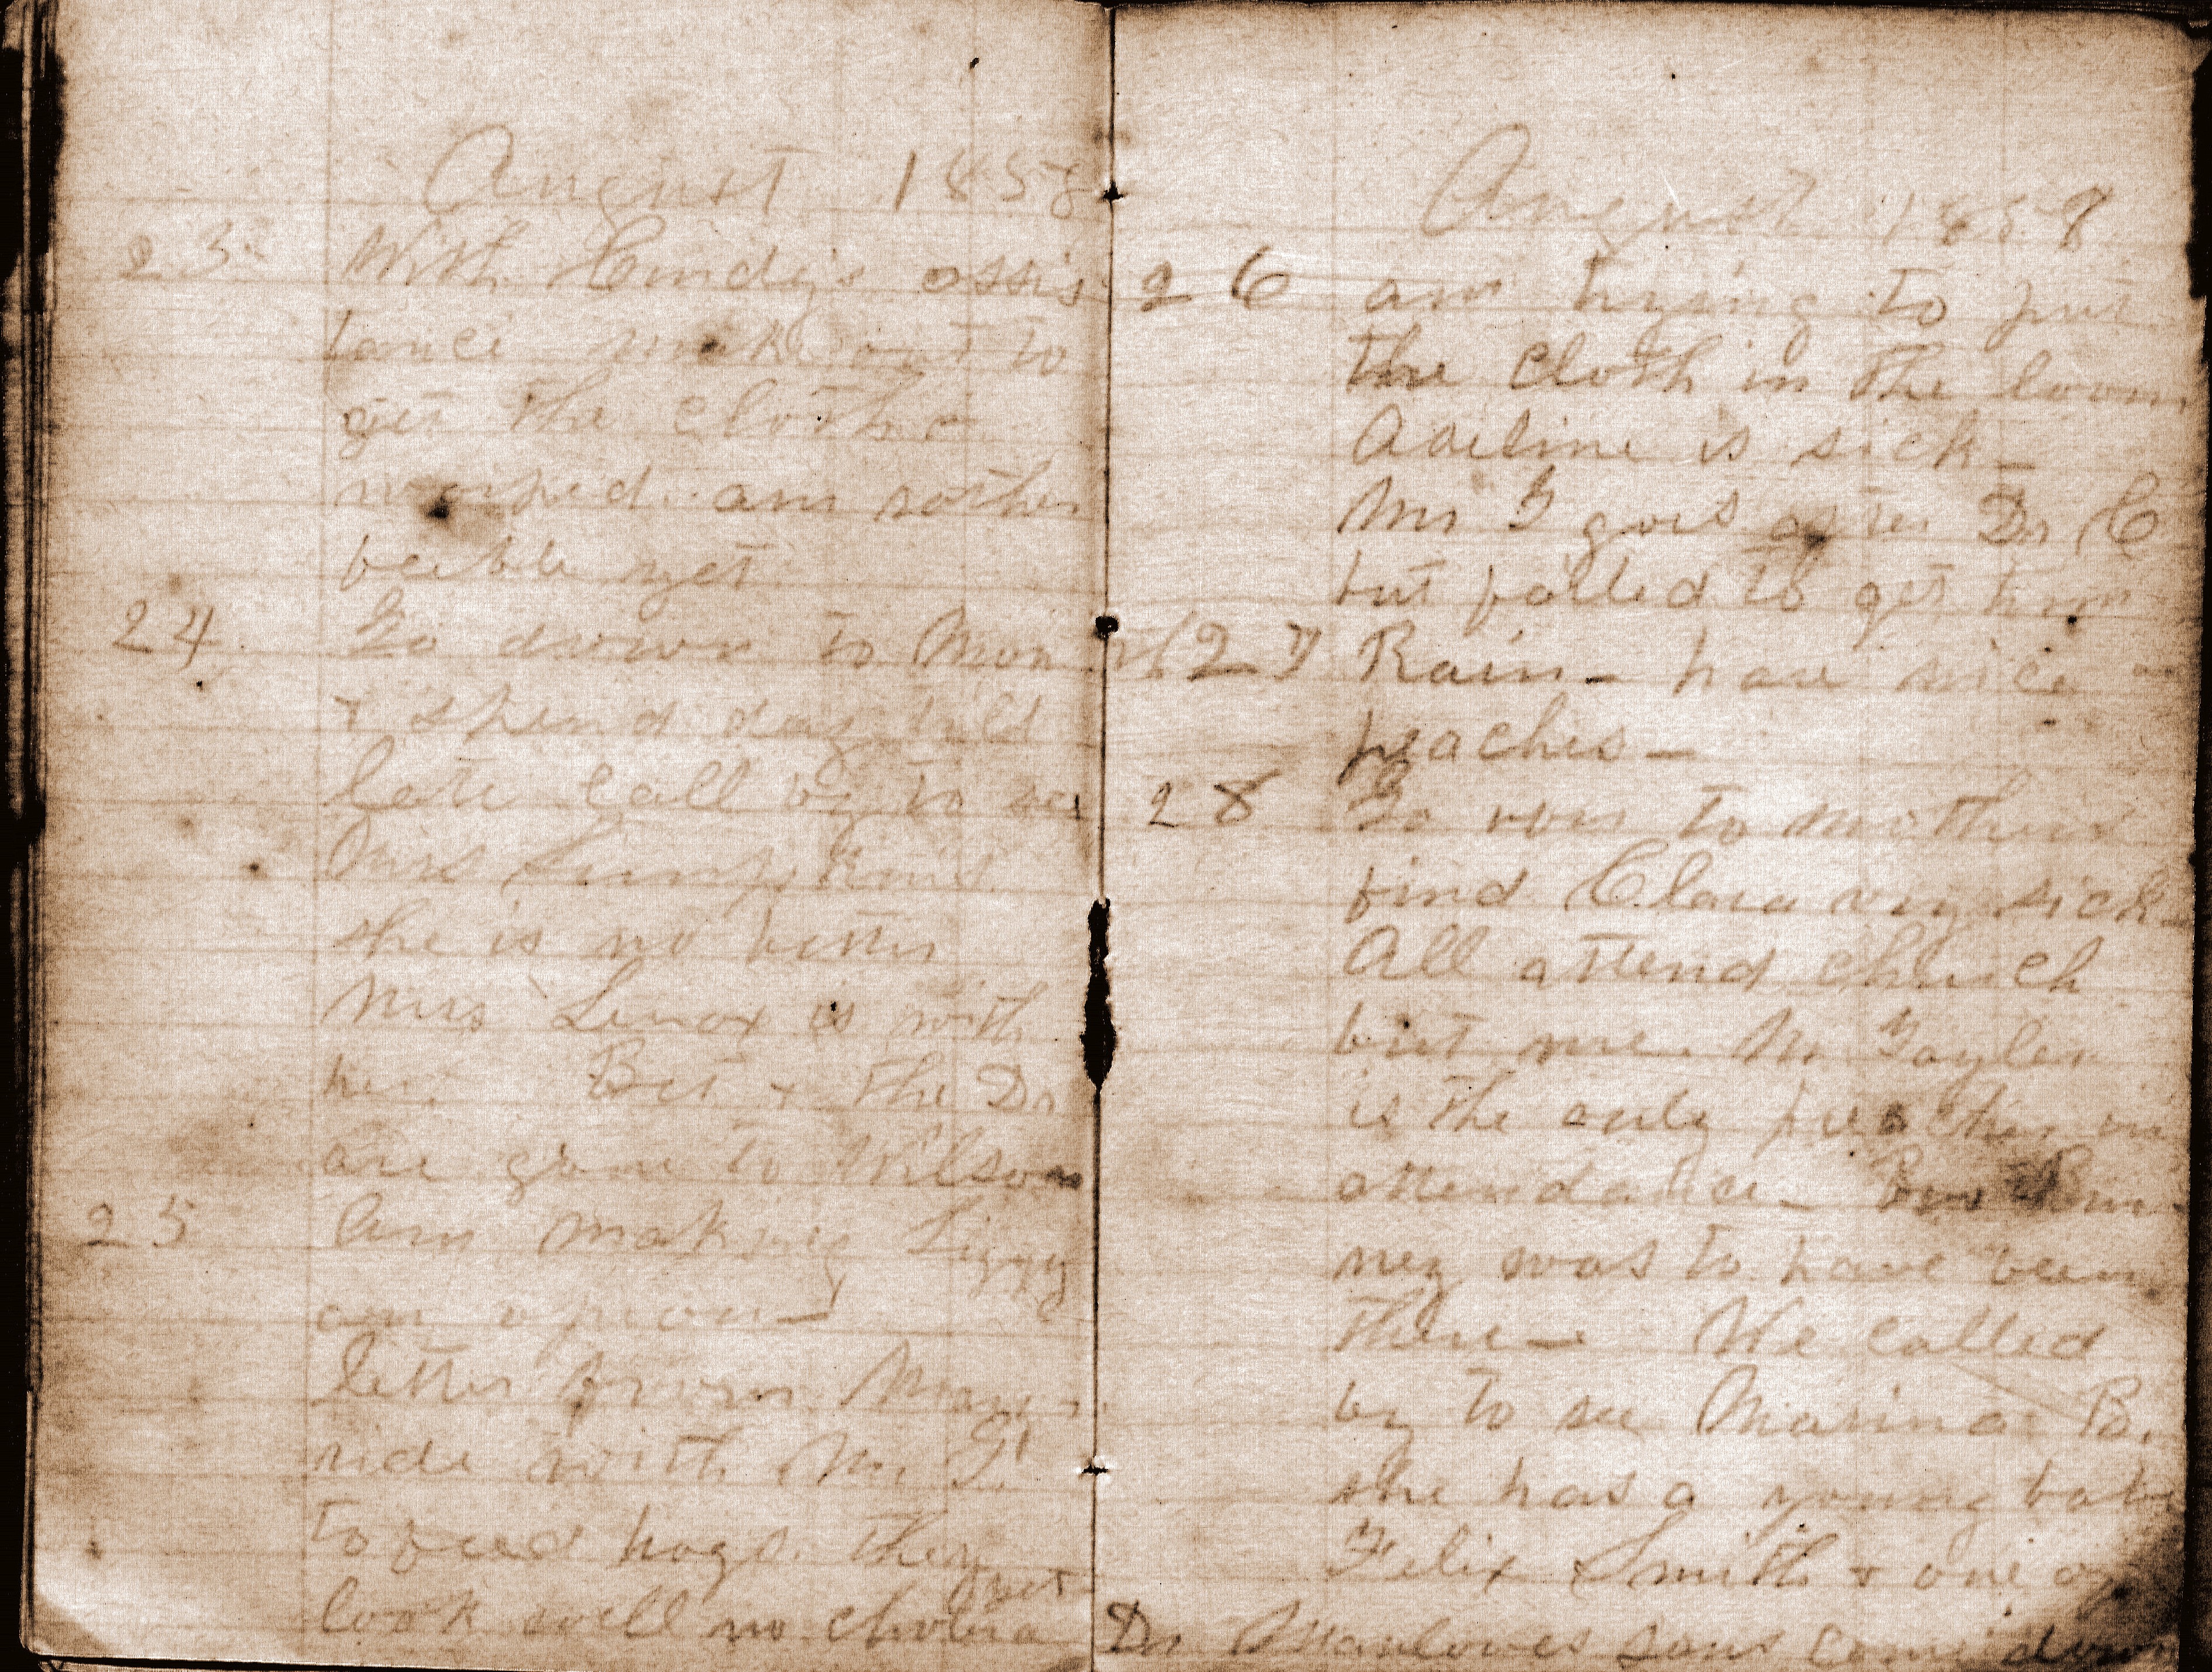 August 1858
23 With Cindy's assis
tance make out to
get the cloth
warped. am rather
feeble yet
24 Go down to Mon
& spend day till
late call by to see
Mrs Lumpkins
she is no better
Mrs Lenox is with
her. Bet & the Dr
are gone to Wilson
25 Am making Lizzy
an apron—
letter from Mary
ride with Mr G
to feed hogs. they
look well no cholera yet
August 1858
26 am trying to put
the cloth in the loom
Adeline is sick—
Mr G goes after Dr C
but failed to get him
27 Rain— have nice
peaches—
28 Go over to mothers
find Clara very sick—
All attend church
but me. Mr Gayler
is the only preacher in
attendance— Bin-
ney was to have been
there— He called
by to see Marina B.
she has a young babe
Felix Smith & one of
Dr Manloves sons come down